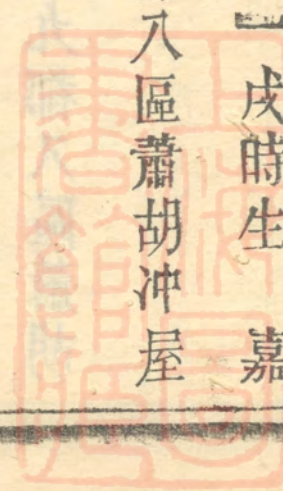 戌時生　嘉
八區蕭胡冲屋